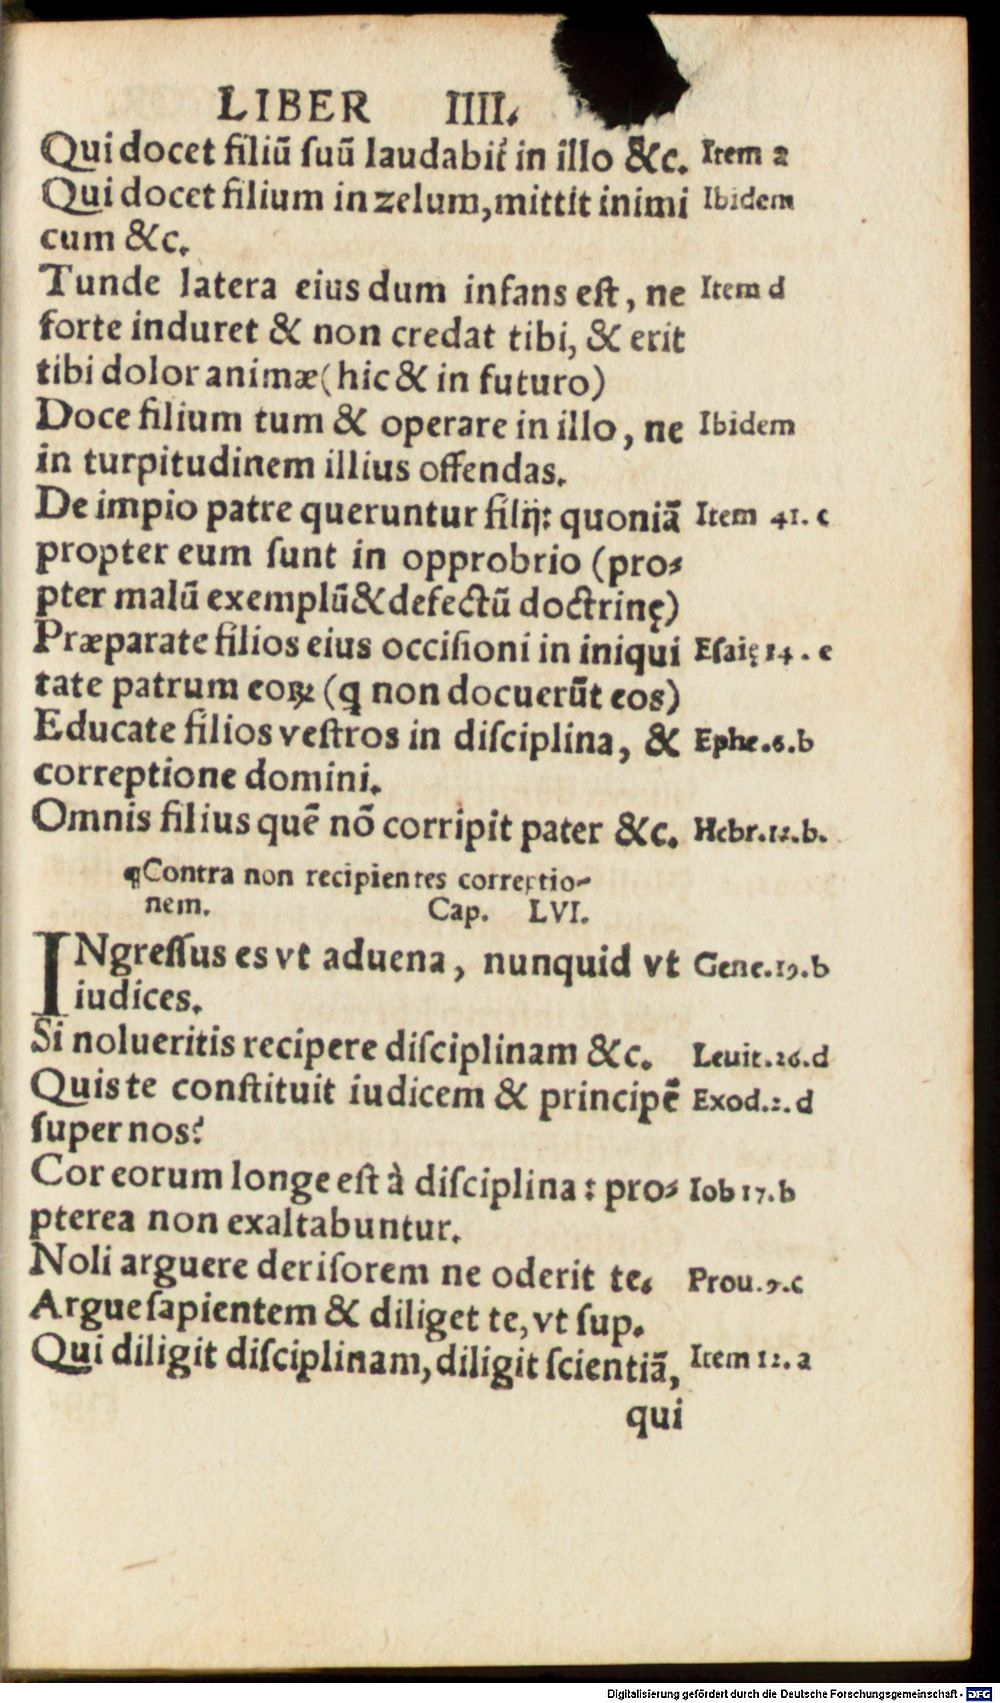 LIBER IIII.
Qui docet filiũ ſuũ laudabit᷑ in illo &c. Item a
Qui docet filium in zelum, mittit inimi Ibidem
cum &c.
Tunde latera eius dum infans eſt, ne Item d
forte induret & non credat tibi, & erit
tibi dolor animæ (hic & in futuro)
Doce filium tum & operare in illo, ne Ibidem
in turpitudinem illius offendas.
De impio patre queruntur filij: quoniã Item 41. c
propter eum ſunt in opprobrio (pro-
pter malũ exemplũ & defectũ doctrinę)
Præparate filios eius occiſioni in iniqui Eſaię 14. e
tate patrum eoꝝ (ꝙ non docuerũt eos)
Educate filios veſtros in diſciplina, & Ephe. 6. b
correptione domini.
Omnis filius quẽ nõ corripit pater &c. Hebr. 12. b.
¶ Contra non recipientes correctio-
nem. Cap. LVI.
INgreſſus es vt aduena, nunquid vt Gene. 19. b
iudices.
Si nolueritis recipere diſciplinam &c. Leuit. 26. d
Quis te conſtituit iudicem & principẽ Exod. 2. d
ſuper nos?
Cor eorum longe eſt à diſciplina: pro- Iob 17. b
pterea non exaltabuntur.
Noli arguere deriſorem ne oderit te. Prou. 9. c
Argue ſapientem & diliget te, vt ſup.
Qui diligit diſciplinam, diligit ſcientiã, Item 12. a
qui
Digitalisierung gefördert durch die Deutsche Forschungsgemeinschaft - DFG